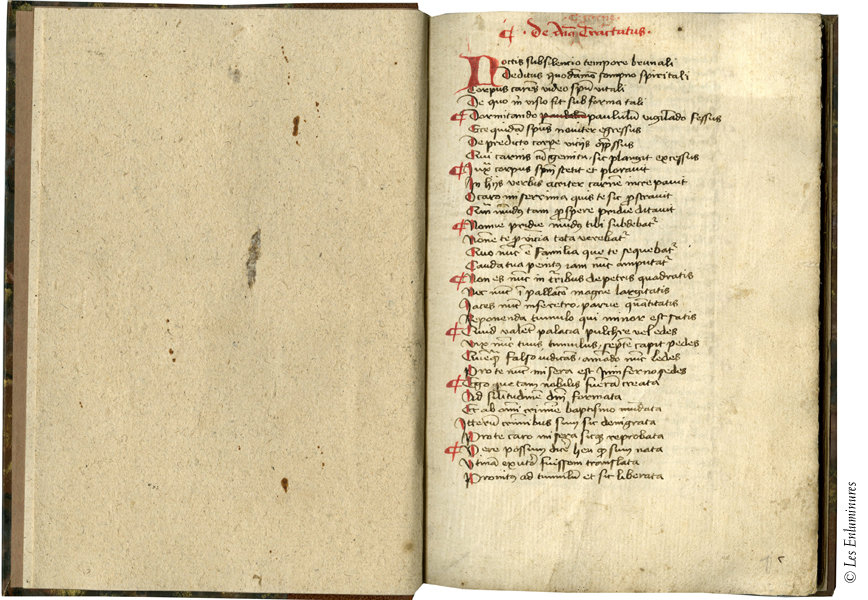 De Tractatus
Noctis subsilencio tempore brumali
Deditus quodamo sompno spiritali
Corpus carens video spu vitali
De quo in visio fit sub forma tali
Dormitando paululum vigilado fessus
Ecce quedam spus noviter egressus
De predicto corpe vicijs oppressus
Qui carnis cu gemitu sic plangit excessus
Juxta corpus spus stetit et ploravit
In hijs verbis acriter carnem increpavit
O caro miserrima quis te sic prostravit
Quam mudus tam prospere pridie ditavit
Nonne pridie mudus tibi subdebat
Nonne te provicia tota verebat
Quo nuc e familia que te sequebat
Cauda tua penitus iam nuc amputat
Non es nuc in turribus de petris quadratis
Nec nuc i pallacio magne largitatis
Jaces nuc in feretro parve quatitatis
Reponenda tumulo qui minor est satis
Quid valent palacia pulchre vel edes
Vix nuc tuus tumulus septem capit pedes
Quemq falso iudicas amodo nuc ledes
Pro te nuc misera est in inferno sedes
Ego que tam nobilis fueram creata
Ad silitudine dni formata
Et ab omi crimine baptismo mudata
Iterum criminibus sum sic denigrata
Pro te caro misera sicq reprobata
Vere possum dicere heu q sum nata
Utinam ex utero fuissem translata
Protinus ad tumulum et sic liberata
© Les Enluminures